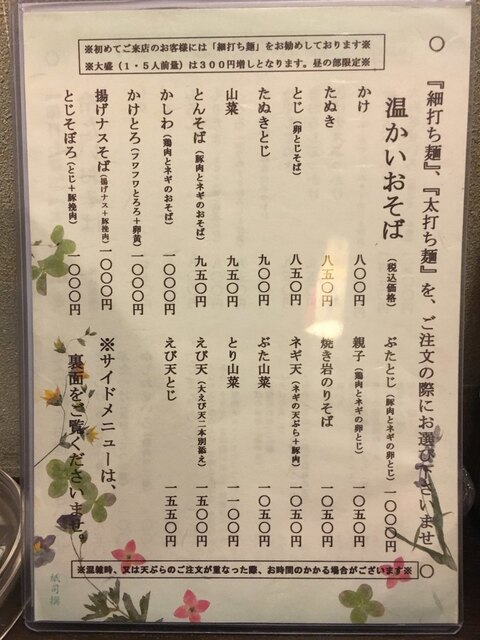 ○『細打ち麺』、『太打ち麺』を、ご注文の際にお選び下さいませ○
※初めてご来店のお客様には「細打ち麺」をお勧めしております※
※大盛(1・5人前量)は300円増しとなります。昼の部限定※
温かいおそば (税込価格)
かけ 八〇〇円
たぬき 八五〇円
とじ(卵とじそば) 八五〇円
たぬきとじ 九〇〇円
山菜 九五〇円
とんそば(豚肉とネギのおそば) 九五〇円
かしわ(鶏肉とネギのおそば) 一〇〇〇円
かけとろ(フワフワとろろ+卵黄) 一〇〇〇円
揚げナスそば(揚げナス+豚挽肉) 一〇〇〇円
とじそぼろ(とじ+豚挽肉) 一〇〇〇円
ぶたとじ(豚肉とネギの卵とじ) 一〇〇〇円
親子(鶏肉とネギの卵とじ) 一〇五〇円
焼き岩のりそば 一〇五〇円
ネギ天(ネギの天ぷら+豚肉) 一〇五〇円
ぶた山菜 一〇五〇円
とり山菜 一一〇〇円
えび天(大えび天二本別添え) 一五〇〇円
えび天とじ 一五五〇円
※サイドメニューは、
裏面をご覧くださいませ。
※混雑時、又は天ぷらのご注文が重なった際、お時間のかかる場合がございます※